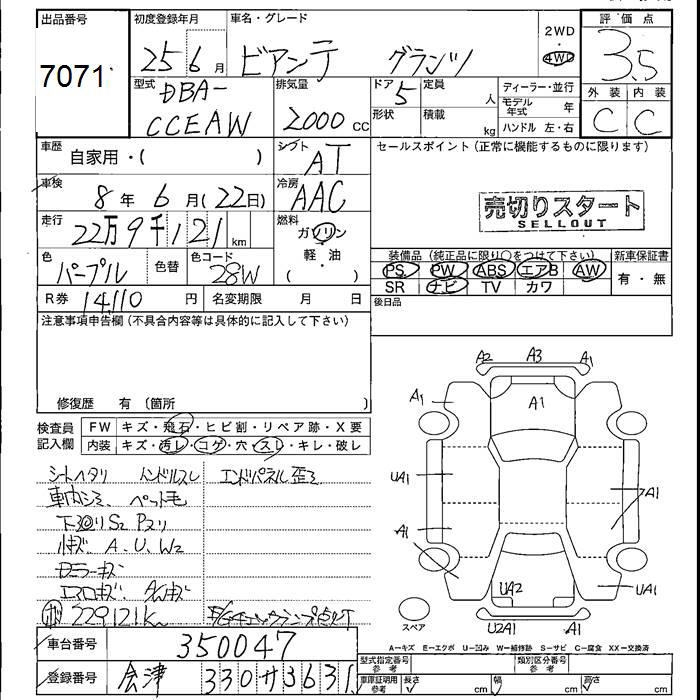 出品番号 初度登録年月 車名・グレード 2WD ・ 4WD 評価点
7071 25 6月 ビアンテ グランツ 3.5
型式 DBA- CCEAW 排気量 2000 cc ドア 5 定員 人 ディーラー・並行 外装 内装
形状 積載 kg モデル年式 年 C C
ハンドル 左・右
車歴 自家用・( ) シフト AT セールスポイント(正常に機能するものに限ります)
車検 8年 6月(22日) 冷房 AAC
売切りスタート
SELLOUT
走行 22万9千121 km 燃料 ガソリン
軽・油
( )
色 パープル 色替 色コード 28W 装備品(純正品に限り○をつけて下さい) 新車保証書
PS PW ABS エアB AW 有・無
SR ナビ TV カワ
R券 14,110 円 名変期限 月 日 後日品
注意事項申告欄(不具合内容等は具体的に記入して下さい)
修復歴 有 (箇所 )
検査員記入欄 FW キズ・飛石・ヒビ割・リペア跡・X要
内装 キズ・汚レ・コゲ・穴・スレ・キレ・破レ
シートヘタリ ハンドルスレ エンドパネル歪ミ
車内シミ、ペット毛
下廻りS2 Pスリ
小キズ、A、U、W2
ドアミラーキズ
229121km
A2 A3 A1
A1 A1
UA1 A1
A1
UA2 UA1
スペア U2A1 A1
A-キズ E-エクボ U-凹み W-補修跡 S-サビ C-腐食 XX-交換済
車台番号 350047 型式指定番号 参考 類別区分番号 参考
登録番号 会津 330 サ 3631 車庫証明用 参考 長さ cm 幅 cm 高さ cm